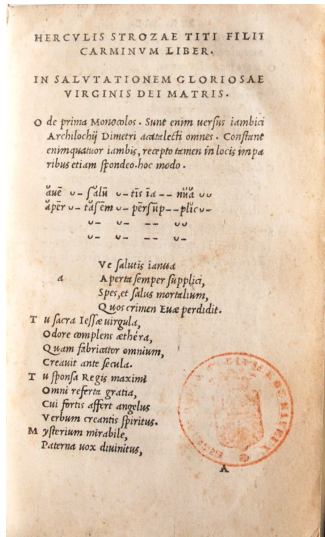 HERCVLIS STROZAE TITI FILII
CARMINVM LIBER.
IN SALVTATIONEM GLORIOSAE
VIRGINIS DEI MATRIS.
O de prima Monocolos. Sunt enim uersus iambici
Archilochij Dimetri acatalecti omnes. Constant
enim quatuor iambis, recepto tamen in locis impa
ribus etiam spondeo. hoc modo.
āuē ᴗ- salū ᴗ- tīs iā -- nŭă ᴗᴗ
āpēr ᴗ- tă sēm ᴗ- pēr sūp -- plĭc ᴗ-
ᴗ- ᴗ- ᴗ- ᴗ-
ᴗ- ᴗ- ᴗ- ᴗ-
Ve salutis ianua
a Aperta semper supplici,
Spes, et salus mortalium,
Quos crimen Euæ perdidit.
T u sacra Iessæ uirgula,
Odore complens æthera,
Quam fabricator omnium,
Creauit ante secula.
T u sponsa Regis maximi
Omni referta gratia,
Cui fortis affert angelus
Verbum creantis spiritus.
M ysterium mirabile,
Paterna uox diuinitus,
A